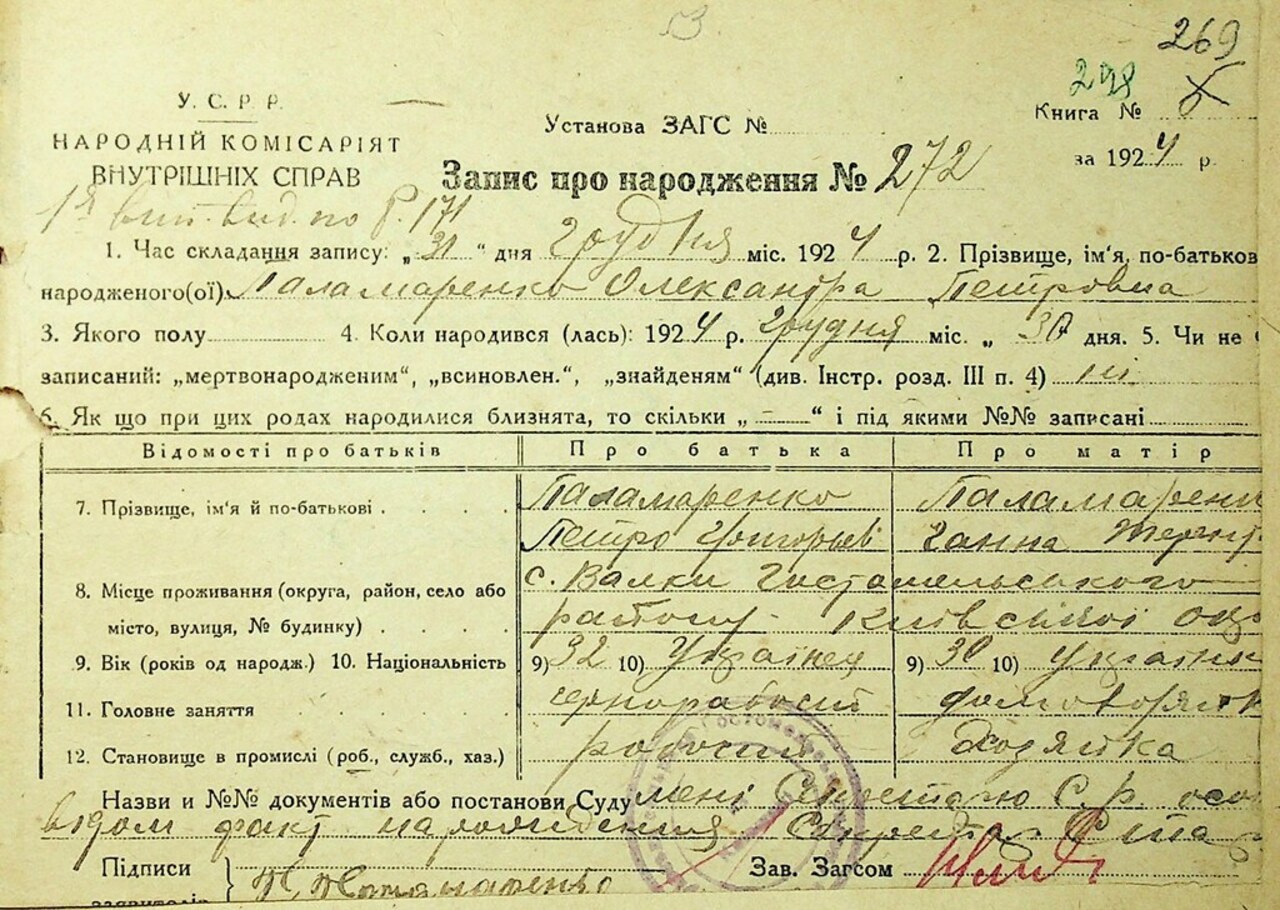 53.
269
298
У. С. Р. Р.
Книга №
Установа ЗАГС №
НАРОДНІЙ КОМІСАРІЯТ
ВНУТРІШНІХ СПРАВ
за 1924 р.
Запис про народження № 272
вид. по Р. 171
1. Час складання запису: „31“ дня грудня міс. 1924 р. 2. Прізвище, ім'я, по-батьков
народженого(ої) Паламаренко Олександра Петровна
3. Якого полу 4. Коли народився (лась): 1924 р. грудня міс. „ 30 дня. 5. Чи не
записаний: „мертвонародженим“, „всиновлен.“, „знайденям“ (див. Інстр. розд. III п. 4) ні
6. Як що при цих родах народилися близнята, то скільки „ — “ і під якими №№ записані
Відомості про батьків Про батька Про матір
7. Прізвище, ім'я й по-батькові Паламаренко Паламарен
Петро Григорьев Ганна
8. Місце проживання (округа, район, село або с. Валки Гостомельського
місто, вулиця, № будинку) району Київської окр
9. Вік (років од народж.) 10. Національність 9) 32 10) Українец 9) 30 10) Українк
11. Головне заняття чернорабочий
12. Становище в промислі (роб., служб., хаз.) рабочий Хозяйка
Назви и №№ документів або постанови Суду мені Секретарю С. Р. осо
відом факт народження
Підписи Зав. Загсом
заявителів